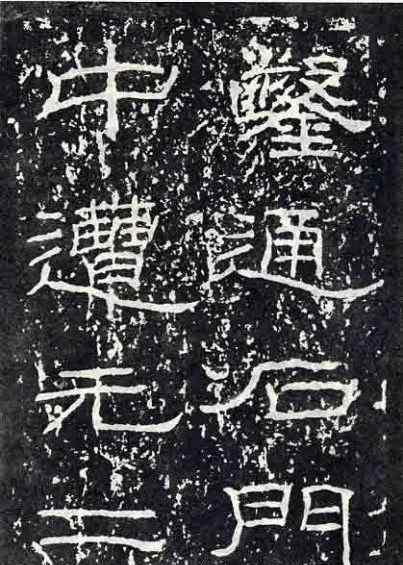 鑿通石門
中遭元二